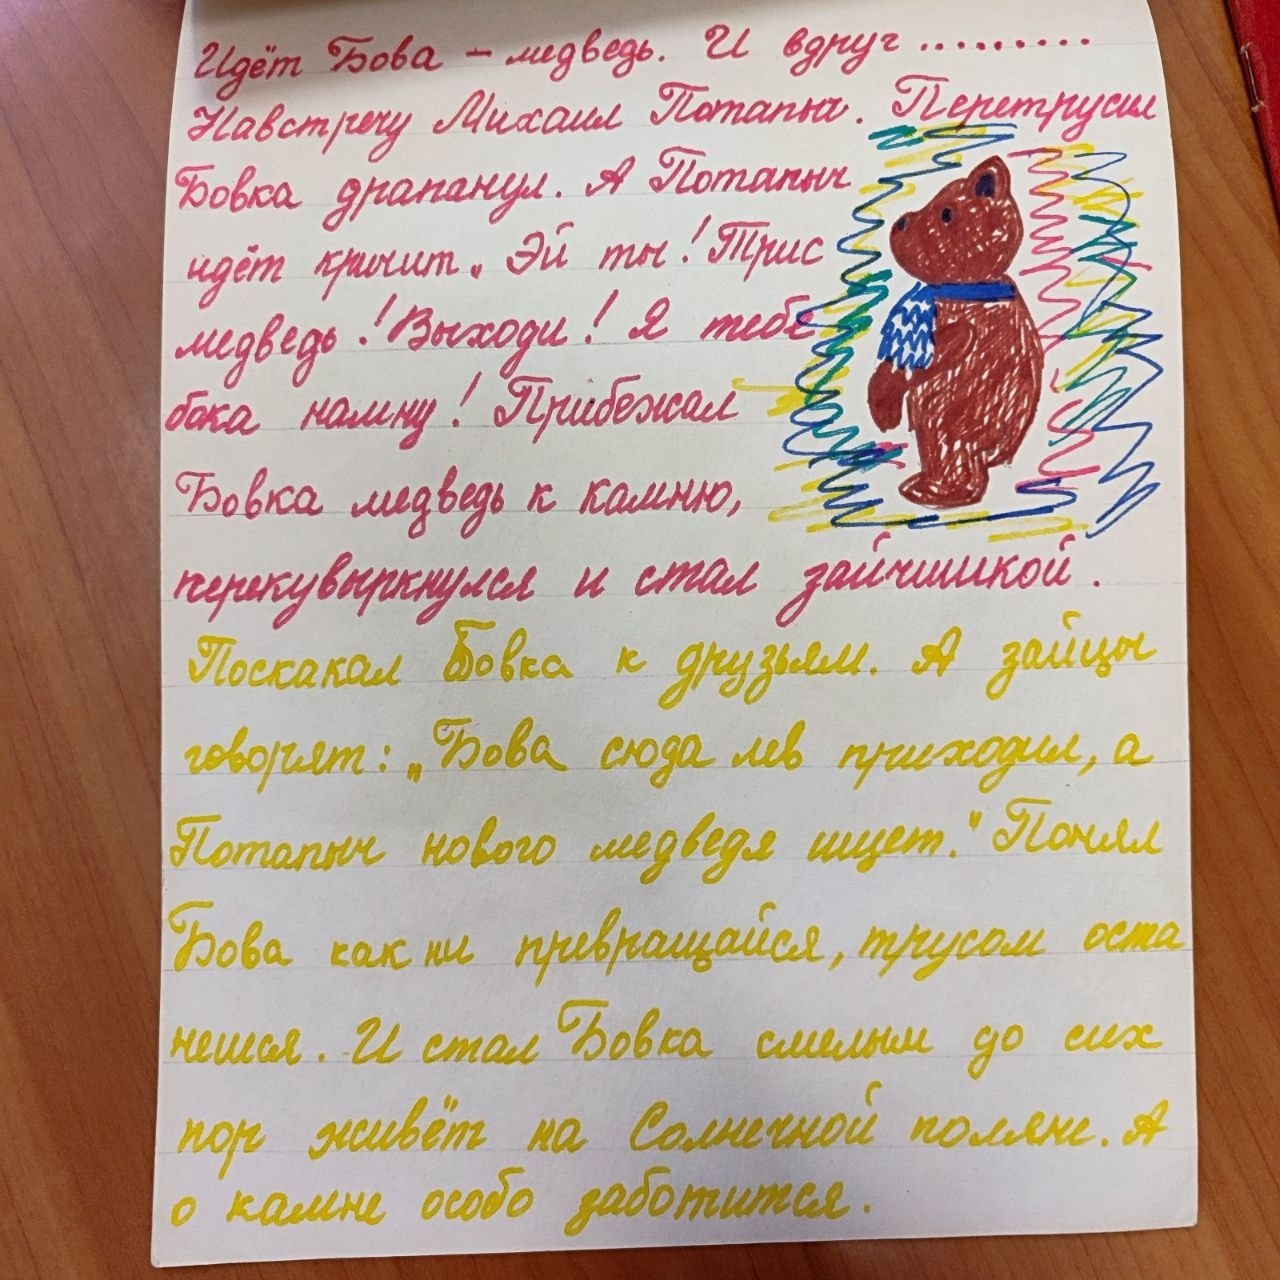 Идёт Бова – медведь. И вдруг .........
Навстречу Михаил Потапыч. Перетрусил
Бовка драпанул. А Потапыч
идёт кричит „ Эй ты! Трис
медведь! Выходи! Я тебе
бока намну! Прибежал
Бовка медведь к камню,
перекувыркнулся и стал зайчишкой.
Поскакал Бовка к друзьям. А зайцы
говорят: „Бова сюда лев приходил, а
Потапыч нового медведя ищет." Понял
Бова как ни превращайся, трусом оста
нешся. И стал Бовка смелым до сих
пор живёт на Солнечной поляне. А
о камне особо заботится.